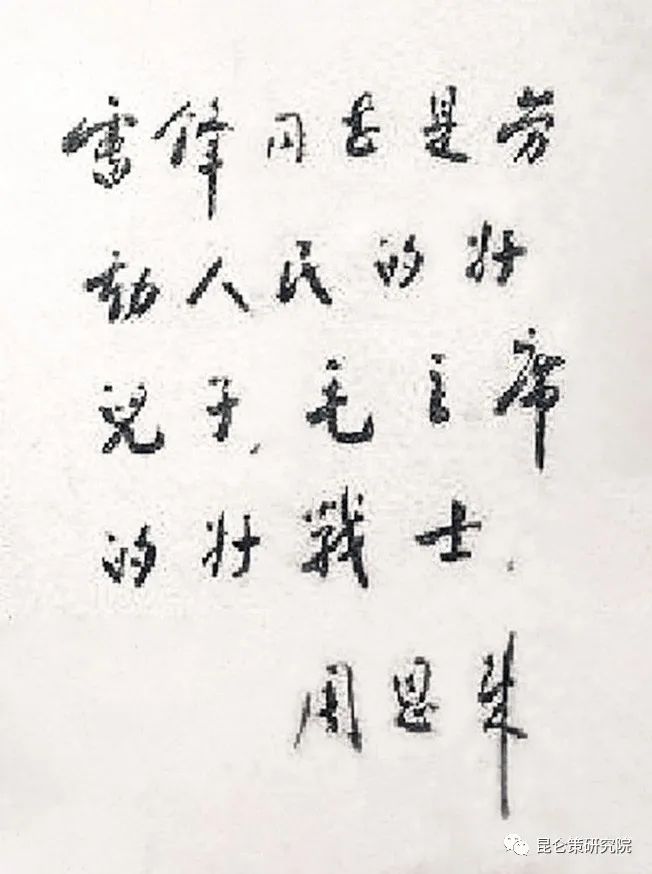 雷锋同志是劳
动人民的好
兒子,毛主席
的好戰士.
周恩来
昆仑策研究院